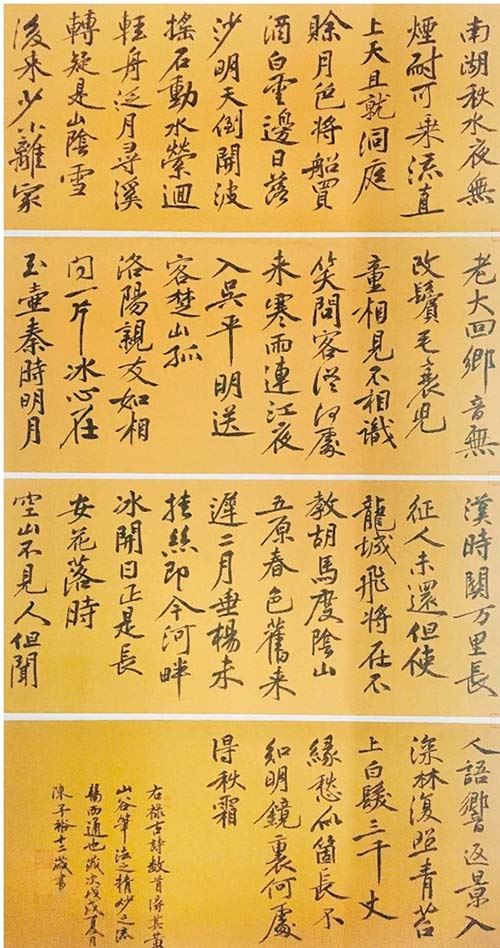 南湖秋水夜無
煙耐可乘流直
上天且就洞庭
賒月色將船買
酒白雲邊日落
沙明天倒開波
搖石動水縈迴
輕舟泛月尋溪
轉疑是山陰雪
後来少小離家
老大回鄉音無
改鬢毛衰兒
童相見不相識
笑問客從何處
来寒雨連江夜
入吳平明送
客楚山孤
洛陽親友如相
問一片冰心在
玉壺秦時明月
漢時關万里長
征人未還但使
龍城飛將在不
教胡馬度陰山
五原春色舊来
遲二月垂楊未
挂絲即今河畔
冰開日正是長
安花落時
空山不見人但聞
人語響返景入
深林復照青苔
上白髮三千丈
緣愁似箇長不
知明鏡裏何處
得秋霜
右祿古詩數首其黃
山谷筆法之精妙之流
暢而通也歲次戊戌夏月
陳子裕十二歲書